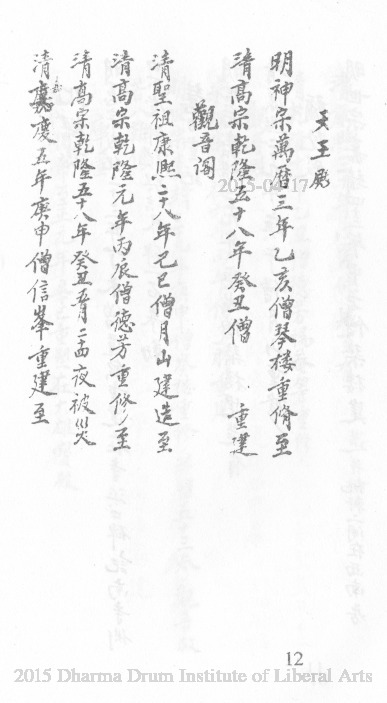 天王殿
明神宗萬曆三年乙亥僧琴樓重脩至
清高宗乾隆五十八年癸丑僧 重建
觀音閣
清聖祖康熙二十八年己巳僧月山建造至
清高宗乾隆元年丙辰僧德芳重修至
清高宗乾隆五十八年癸丑五月二十四夜被災
清嘉慶五年庚申僧信峯重建至
2015-04-17
12
2015 Dharma Drum Institute of Liberal Arts